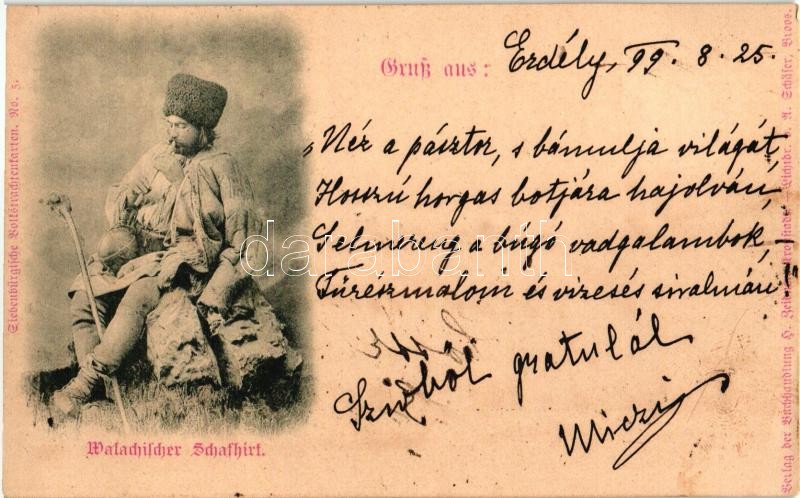 Siebenbürgische Volkstrachtenkarten. No. 5.
Gruß aus:
Erdély, 99. 8. 25.
„Néz a pásztor, s bámulja világát,
Hosszú horgas botjára hajolván,
Selmereng a búgó vadgalambok –
Fűreszmalom és vizesés siralmán"
Szivből gratulál
Miczi
Walachischer Schafhirt.
darabanth
Verlag der Buchhandlung H. Zeidner, Kronstadt. Lichtdr. v. A. Schäser, Broos.